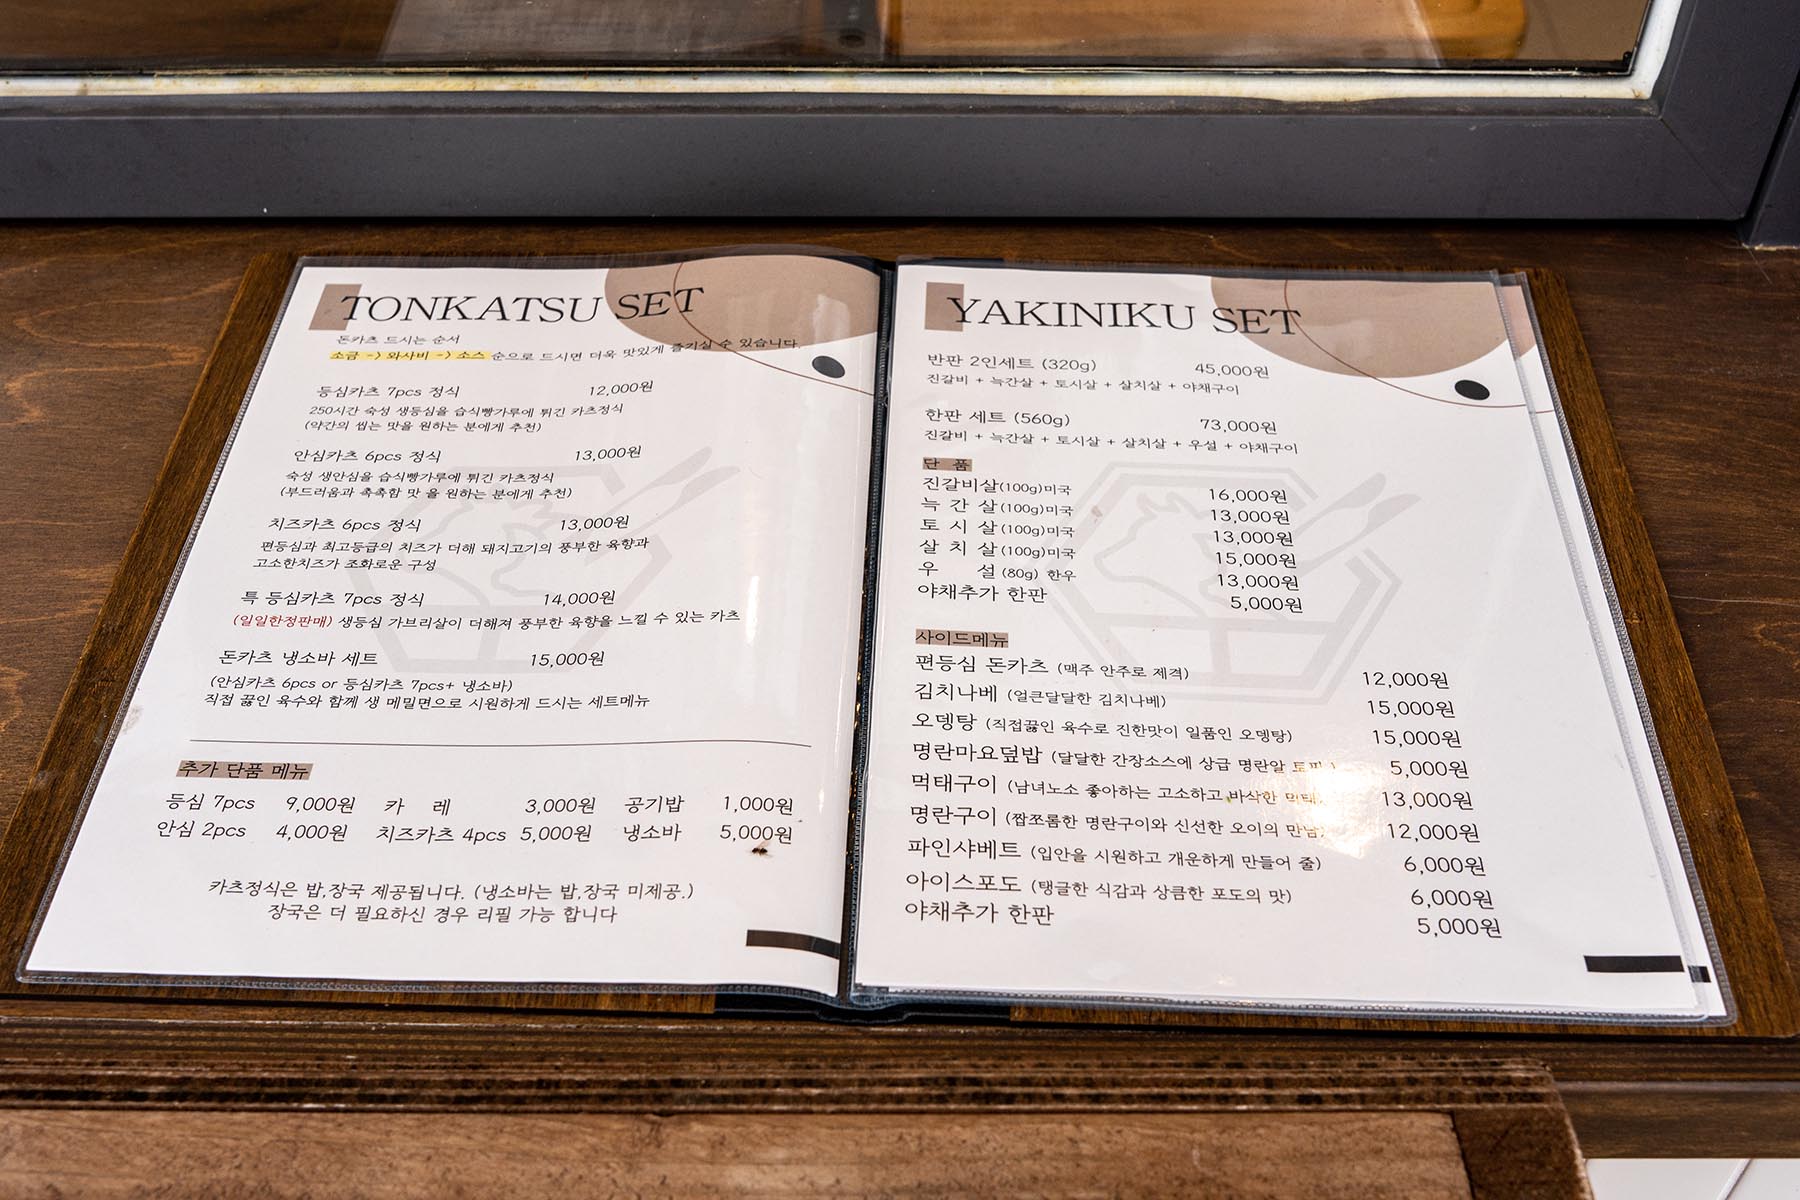 TONKATSU SET
돈카츠 드시는 순서
소금 -> 와사비 -> 소스 순으로 드시면 더욱 맛있게 즐기실 수 있습니다.
등심카츠 7pcs 정식 12,000원
250시간 숙성 생등심을 습식빵가루에 튀긴 카츠정식
(약간의 씹는 맛을 원하는 분에게 추천)
안심카츠 6pcs 정식 13,000원
숙성 생안심을 습식빵가루에 튀긴 카츠정식
(부드러움과 촉촉함 맛 을 원하는 분에게 추천)
치즈카츠 6pcs 정식 13,000원
편등심과 최고등급의 치즈가 더해 돼지고기의 풍부한 육향과
고소한치즈가 조화로운 구성
특 등심카츠 7pcs 정식 14,000원
(일일한정판매) 생등심 가브리살이 더해져 풍부한 육향을 느낄 수 있는 카츠
돈카츠 냉소바 세트 15,000원
(안심카츠 6pcs or 등심카츠 7pcs+ 냉소바)
직접 끓인 육수와 함께 생 메밀면으로 시원하게 드시는 세트메뉴
추가 단품 메뉴
등심 7pcs 9,000원 카 레 3,000원 공기밥 1,000원
안심 2pcs 4,000원 치즈카츠 4pcs 5,000원 냉소바 5,000원
카츠정식은 밥,장국 제공됩니다. (냉소바는 밥,장국 미제공.)
장국은 더 필요하신 경우 리필 가능 합니다
YAKINIKU SET
반판 2인세트 (320g) 45,000원
진갈비 + 늑간살 + 토시살 + 살치살 + 야채구이
한판 세트 (560g) 73,000원
진갈비 + 늑간살 + 토시살 + 살치살 + 우설 + 야채구이
단 품
진갈비살(100g)미국 16,000원
늑 간 살(100g)미국 13,000원
토 시 살(100g)미국 13,000원
살 치 살(100g)미국 15,000원
우 설(80g) 한우 13,000원
야채추가 한판 5,000원
사이드메뉴
편등심 돈카츠 (맥주 안주로 제격) 12,000원
김치나베 (얼큰달달한 김치나베) 15,000원
오뎅탕 (직접끓인 육수로 진한맛이 일품인 오뎅탕) 15,000원
명란마요덮밥 (달달한 간장소스에 상급 명란알 5,000원
먹태구이 (남녀노소 좋아하는 고소하고 바삭한 먹태) 13,000원
명란구이 (짭쪼롬한 명란구이와 신선한 오이의 만남) 12,000원
파인샤베트 (입안을 시원하고 개운하게 만들어 줄) 6,000원
아이스포도 (탱글한 식감과 상큼한 포도의 맛) 6,000원
야채추가 한판 5,000원